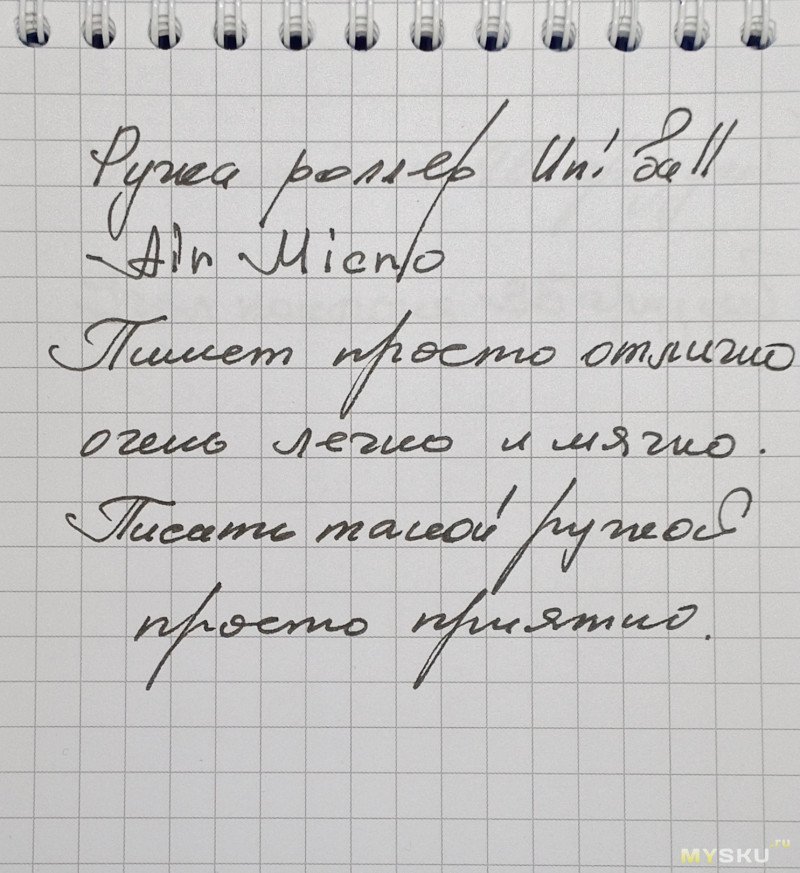 Ручка роллер Uni ball
Air Micro
Пишет просто отлично
очень легко и мягко.
Писать такой ручкой
просто приятно.
MYSKU.ru